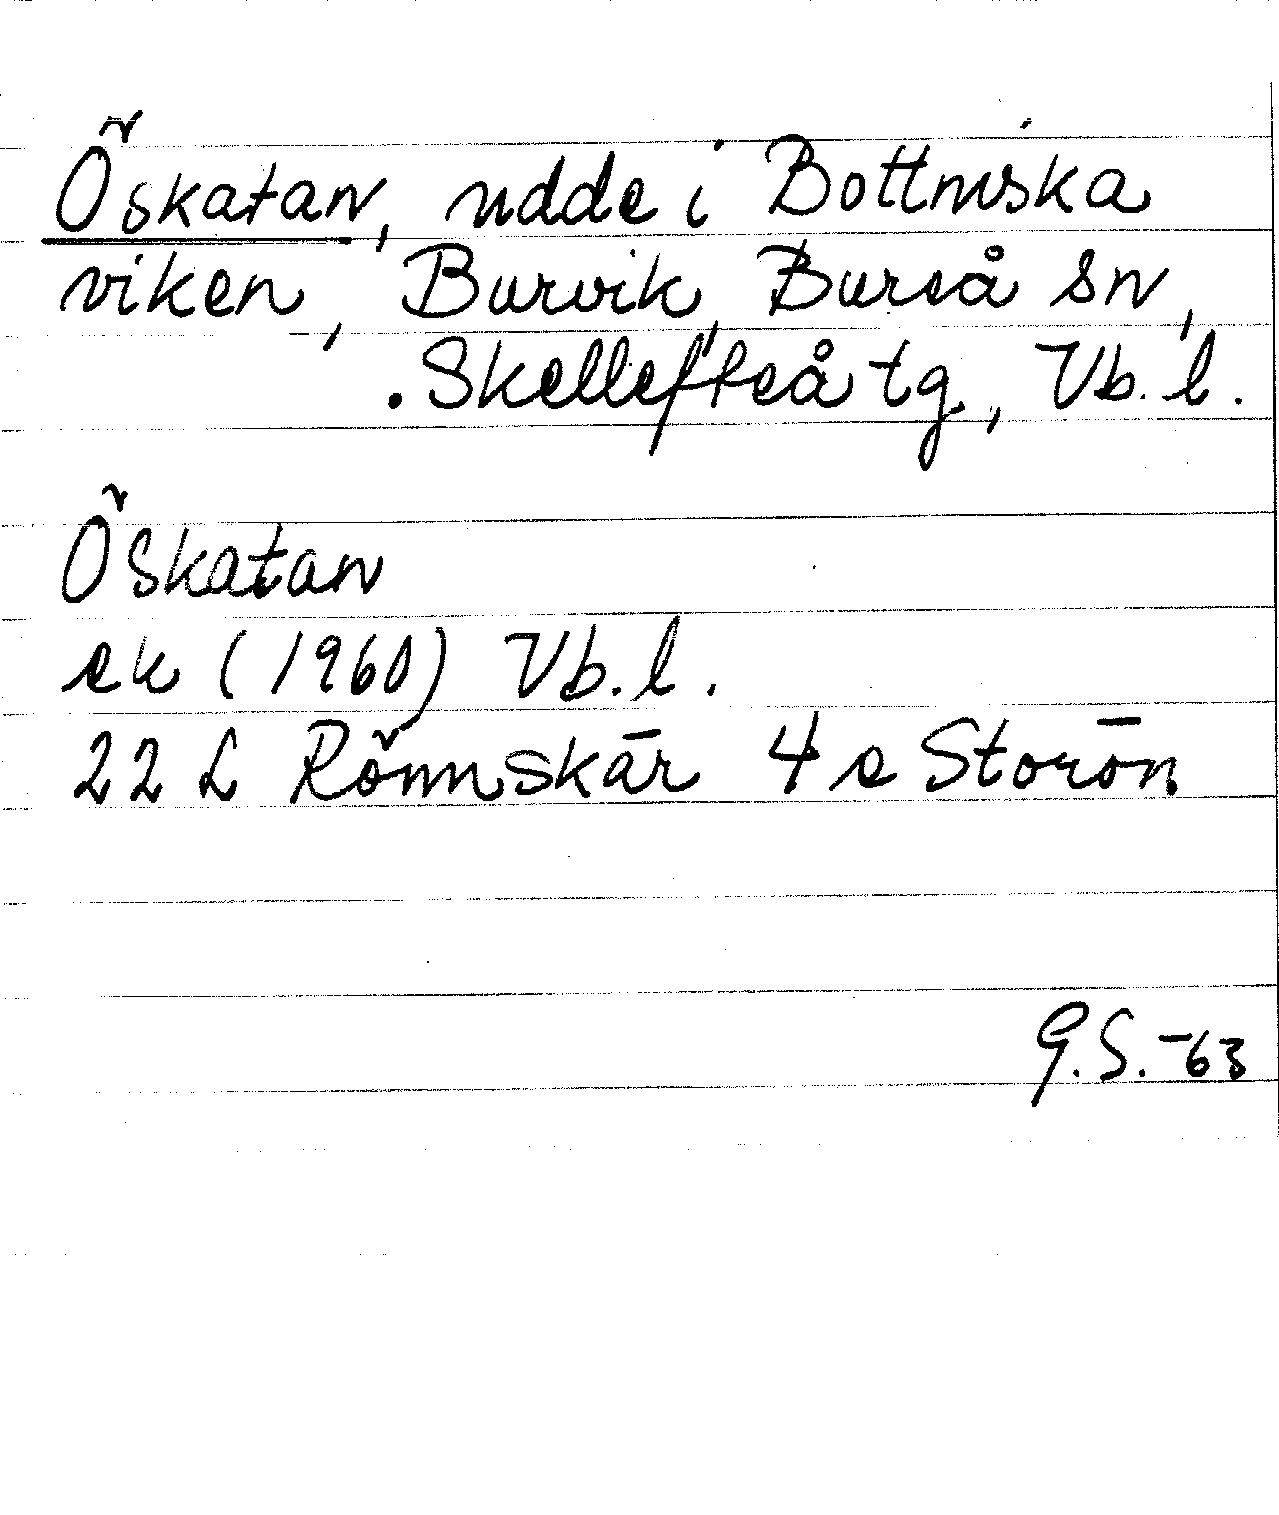 Öskatan, udde i Bottniska
viken, Burvik, Bureå sn,
Skellefteå tg, Vb. l.
Öskatan
ek (1960) Vb. l.
22 L Rönnskär 4 e Storön
G.S. -63